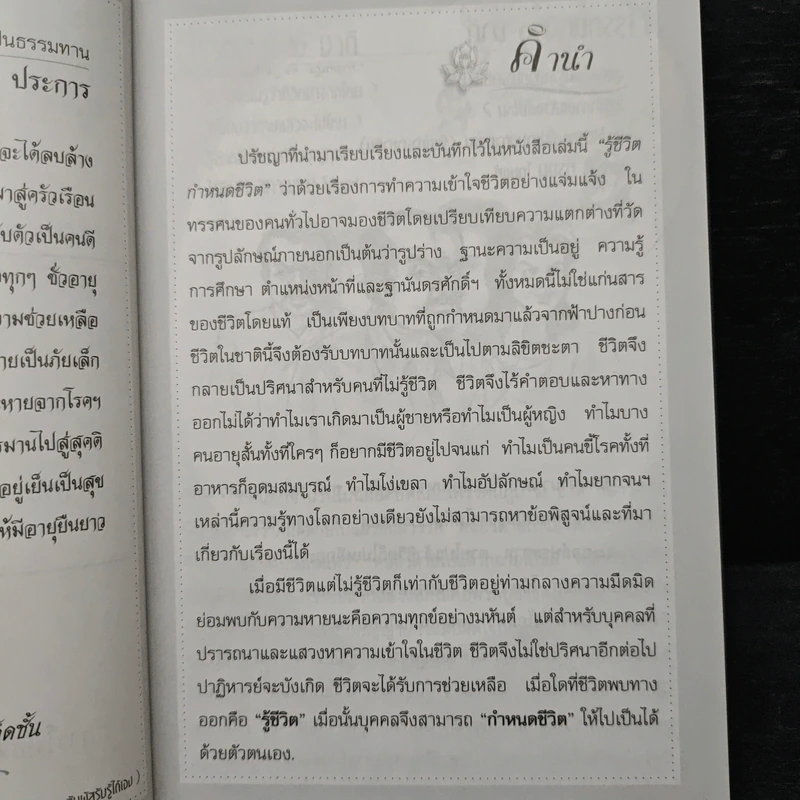 ป็นธรรมทาน
ประการ
จะได้ลบล้าง
มาสู่ครัวเรือน
ับตัวเป็นคนดี
อทุกๆ ชั่วอายุ
ามช่วยเหลือ
ายเป็นภัยเล็ก
ะหายจากโรคฯ
รมานไปสู่สุคติ
อยู่เย็นเป็นสุข
ห้มีอายุยืนยาว
็ดชั้น
คำนำ
ปรัชญาที่นำมาเรียบเรียงและบันทึกไว้ในหนังสือเล่มนี้ “รู้ชีวิต
กำหนดชีวิต” ว่าด้วยเรื่องการทำความเข้าใจชีวิตอย่างแจ่มแจ้ง ใน
ทรรศนของคนทั่วไปอาจมองชีวิตโดยเปรียบเทียบความแตกต่างที่วัด
จากรูปลักษณ์ภายนอกเป็นต้นว่ารูปร่าง ฐานะความเป็นอยู่ ความรู้
การศึกษา ตำแหน่งหน้าที่และฐานันดรศักดิ์ฯ ทั้งหมดนี้ไม่ใช่แก่นสาร
ของชีวิตโดยแท้ เป็นเพียงบทบาทที่ถูกกำหนดมาแล้วจากฟ้าปางก่อน
ชีวิตในชาตินี้จึงต้องรับบทบาทนั้นและเป็นไปตามลิขิตชะตา ชีวิตจึง
กลายเป็นปริศนาสำหรับคนที่ไม่รู้ชีวิต ชีวิตจึงไร้คำตอบและหาทาง
ออกไม่ได้ว่าทำไมเราเกิดมาเป็นผู้ชายหรือทำไมเป็นผู้หญิง ทำไมบาง
คนอายุสั้นทั้งที่ใครๆ ก็อยากมีชีวิตอยู่ไปจนแก่ ทำไมเป็นคนขี้โรคทั้งที่
อาหารก็อุดมสมบูรณ์ ทำไมโง่เขลา ทำไมอัปลักษณ์ ทำไมยากจนฯ
เหล่านี้ความรู้ทางโลกอย่างเดียวยังไม่สามารถหาข้อพิสูจน์และที่มา
เกี่ยวกับเรื่องนี้ได้
เมื่อมีชีวิตแต่ไม่รู้ชีวิตก็เท่ากับชีวิตอยู่ท่ามกลางความมืดมิด
ย่อมพบกับความหายนะคือความทุกข์อย่างมหันต์ แต่สำหรับบุคคลที่
ปรารถนาและแสวงหาความเข้าใจในชีวิต ชีวิตจึงไม่ใช่ปริศนาอีกต่อไป
ปาฏิหารย์จะบังเกิด ชีวิตจะได้รับการช่วยเหลือ เมื่อใดที่ชีวิตพบทาง
ออกคือ “รู้ชีวิต” เมื่อนั้นบุคคลจึงสามารถ “กำหนดชีวิต” ให้ไปเป็นได้
ด้วยตัวตนเอง.